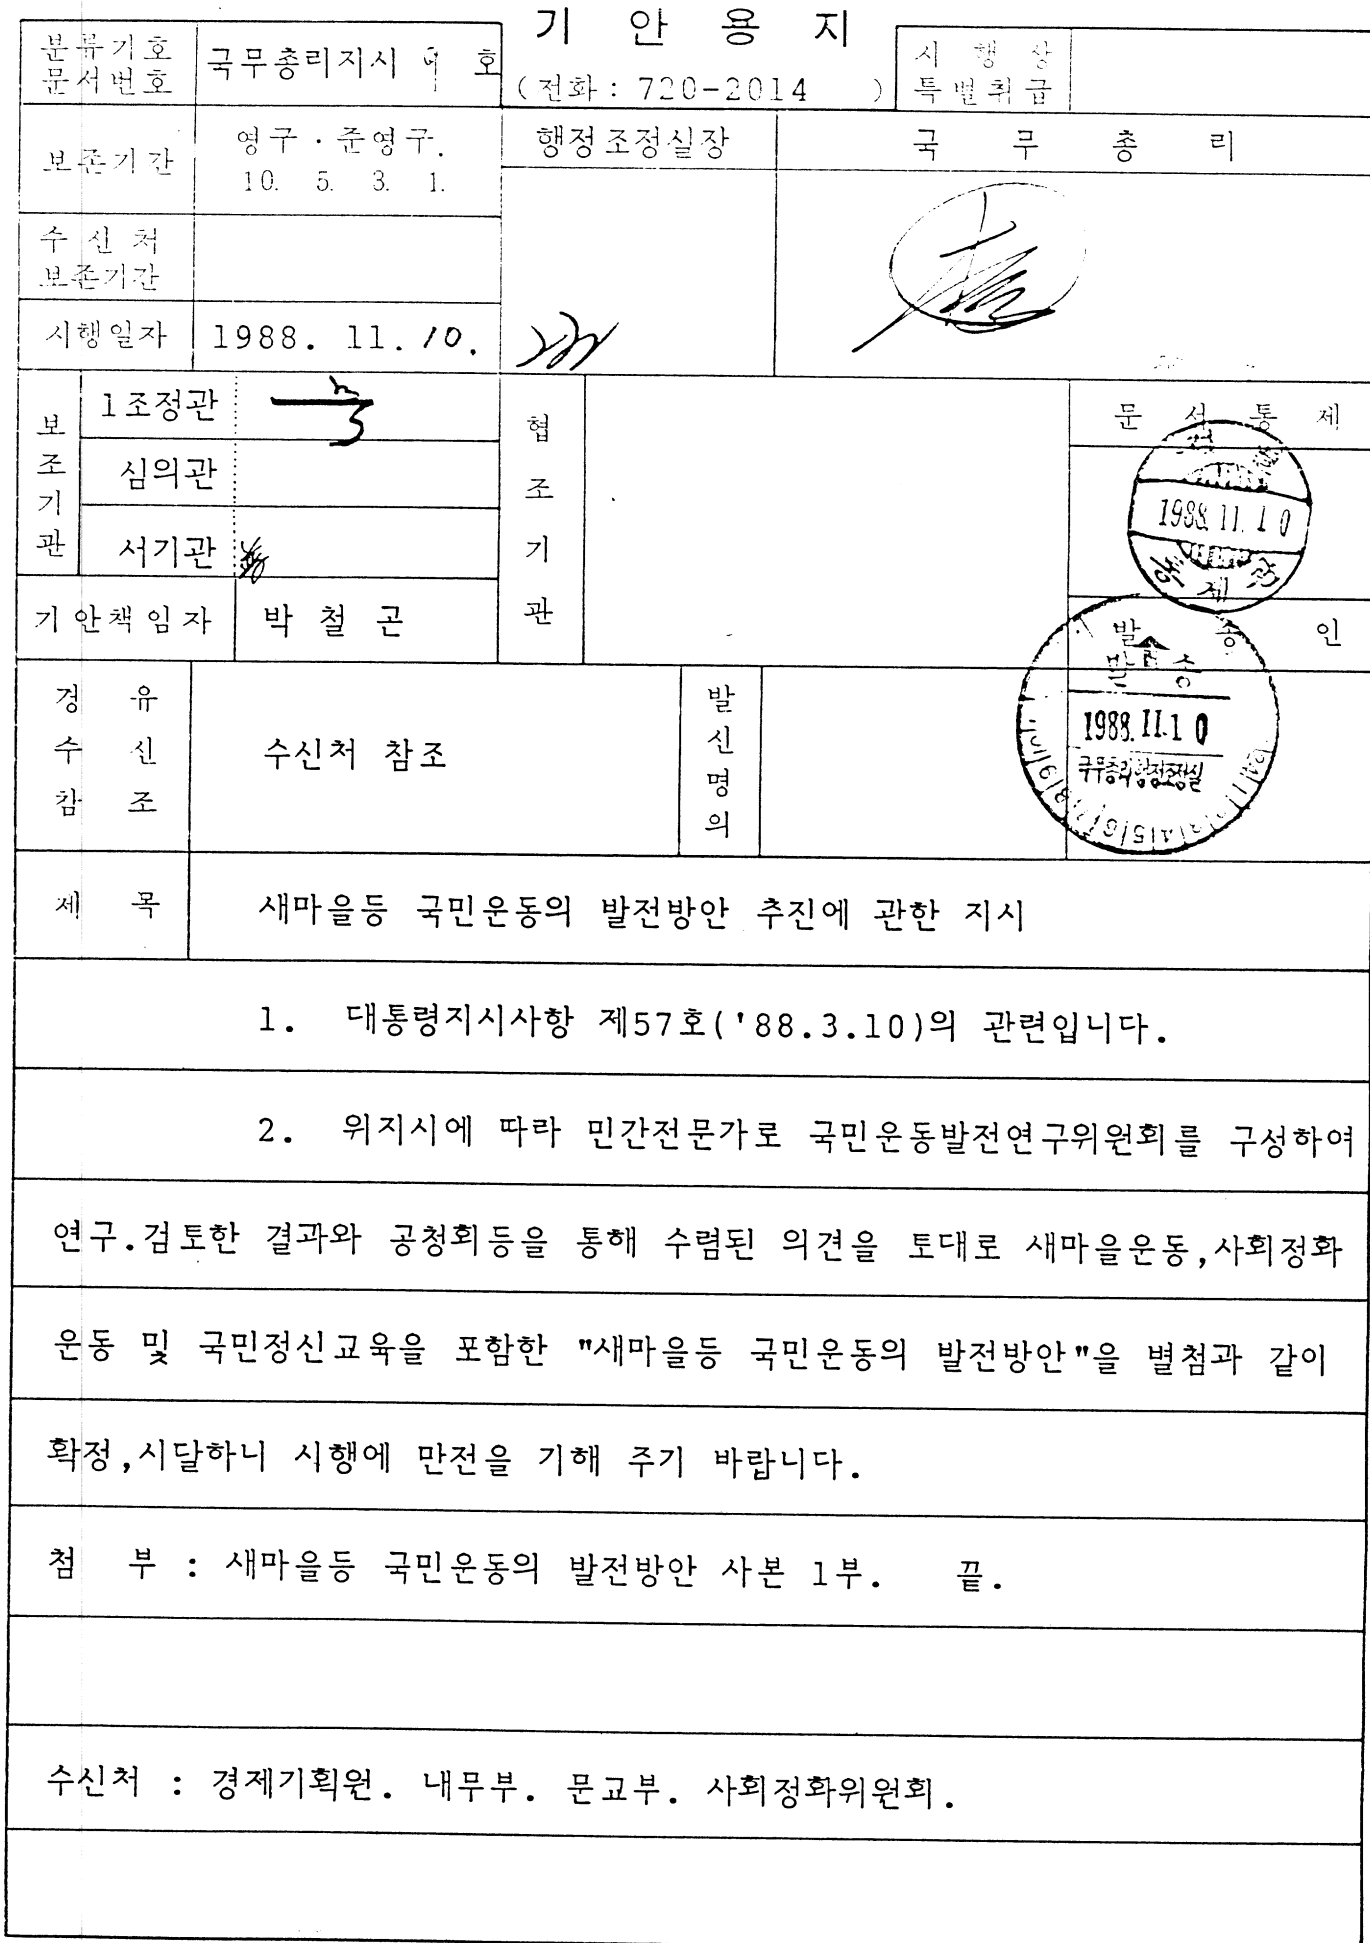 기 안 용 지
(전화 : 720-2014 )
분류기호
문서번호
국무총리지시 호
시 행 상
특별취급
보존기간
영구 · 준영구.
10. 5. 3. 1.
행정조정실장
국 무 총 리
수 신 처
보존기간
시행일자
1988. 11. 10.
보조기관
1조정관
심의관
서기관
협조기관
문 서 통 제
1988. 11. 10
기안책임자
박 철 곤
발 송 인
발 송
1988. 11. 10
국무총리행정조정실
경 유
수 신
참 조
수신처 참조
발신명의
제 목
새마을등 국민운동의 발전방안 추진에 관한 지시
1. 대통령지시사항 제57호('88.3.10)의 관련입니다.
2. 위지시에 따라 민간전문가로 국민운동발전연구위원회를 구성하여
연구.검토한 결과와 공청회등을 통해 수렴된 의견을 토대로 새마을운동,사회정화
운동 및 국민정신교육을 포함한 "새마을등 국민운동의 발전방안"을 별첨과 같이
확정,시달하니 시행에 만전을 기해 주기 바랍니다.
첨 부 : 새마을등 국민운동의 발전방안 사본 1부. 끝.
수신처 : 경제기획원. 내무부. 문교부. 사회정화위원회.